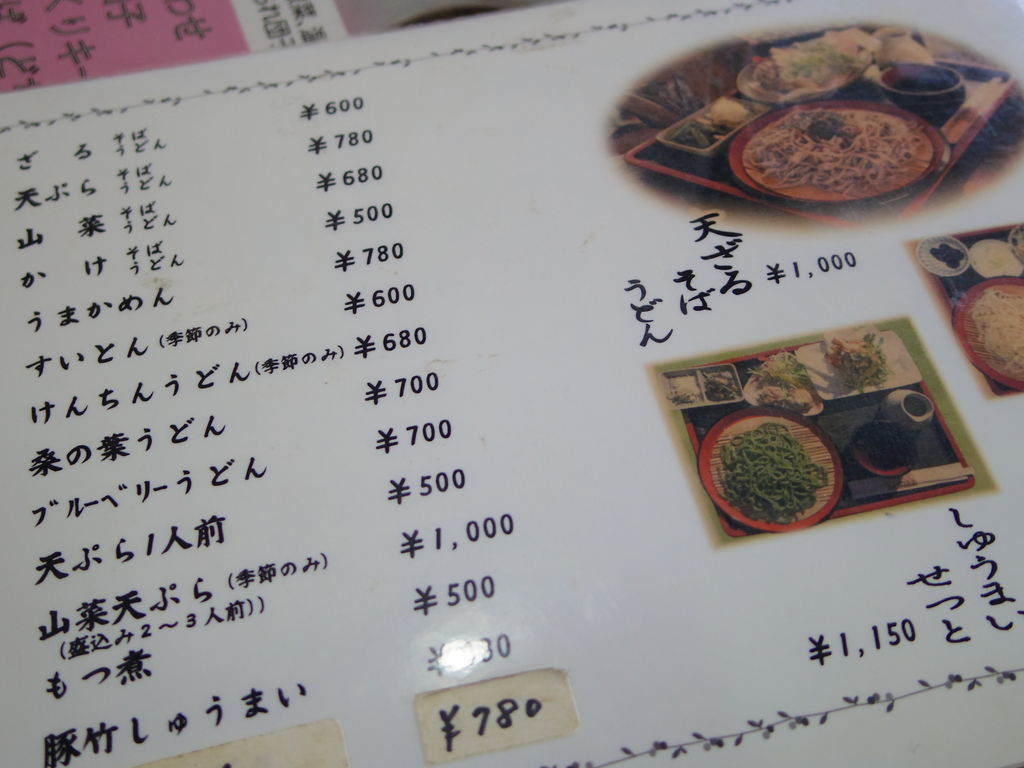 ざる そば うどん ¥600
天ぷら そば うどん ¥780
山菜 そば うどん ¥680
かけ そば うどん ¥500
うまかめん ¥780
すいとん(季節のみ) ¥600
けんちんうどん(季節のみ) ¥680
桑の葉うどん ¥700
ブルーベリーうどん ¥700
天ぷら1人前 ¥500
山菜天ぷら(季節のみ) ¥1,000
(盛込み2〜3人前))
もつ煮 ¥500
豚竹しゅうまい
¥780
天ざる
そば
うどん
¥1,000
しゅうまい
せっと
¥1,150